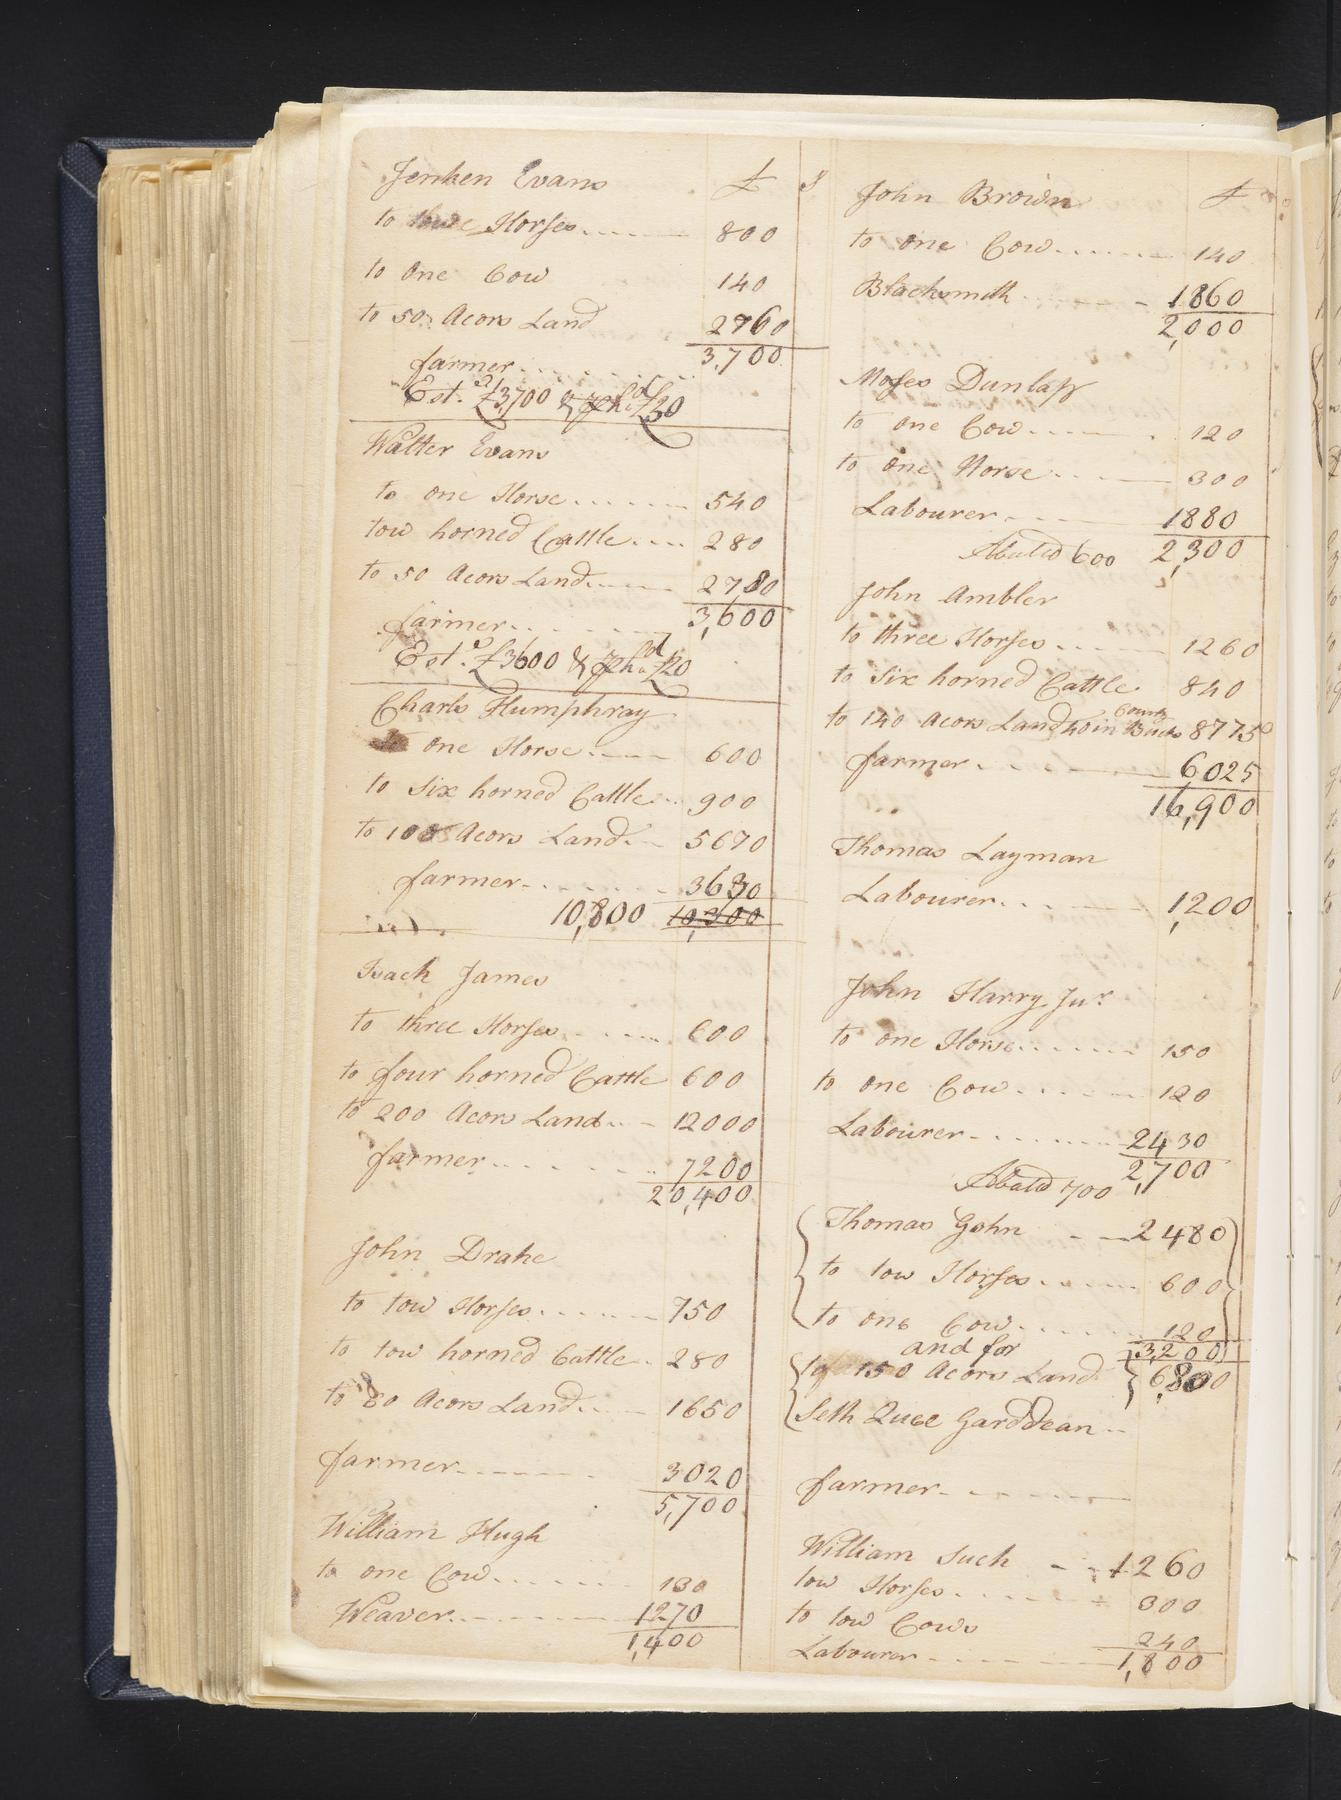 Jenken Evans £ s
to three Horses 800
to One Cow 140
to 50 Acors Land 2760
farmer 3,700
Est. £3,700 & £30
Walter Evans
to one Horse 540
tow horned Cattle 280
to 50 Acors Land 2780
farmer 3,600
Est. £3600 & £20
Charls Humphray
to one Horse 600
to Six horned Cattle 900
to 100 Acors Land 5670
farmer 3630
10,800 10,300
Isack James
to three Horses 600
to four horned Cattle 600
to 200 Acors Land 12000
farmer 7200
20,400
John Drake
to tow Horses 750
to tow horned Cattle 280
to 80 Acors Land 1650
farmer 3020
5,700
William Hugh
to one Cow 130
Weaver 1270
1,400
John Brown £
to one Cow 140
Blacksmith 1860
2,000
Moses Dunlap
to one Cow 120
to one Horse 300
Labourer 1880
Abated 600 2,300
John Ambler
to three Horses 1260
to Six horned Cattle 840
to 140 Acors Land 40 in County Bucks 8775
farmer 6025
16,900
Thomas Layman
Labourer 1,200
John Harry Jur
to one Horse 150
to one Cow 120
Labourer 2430
Abated 700 2,700
Thomas Gohn 2480
to tow Horses 600
to one Cow 120
and for 3,200
150 Acors Land 6,800
Seth Quee Garddean
farmer
William Such 1260
tow Horses 300
to tow Cows 240
Labourer 1,800